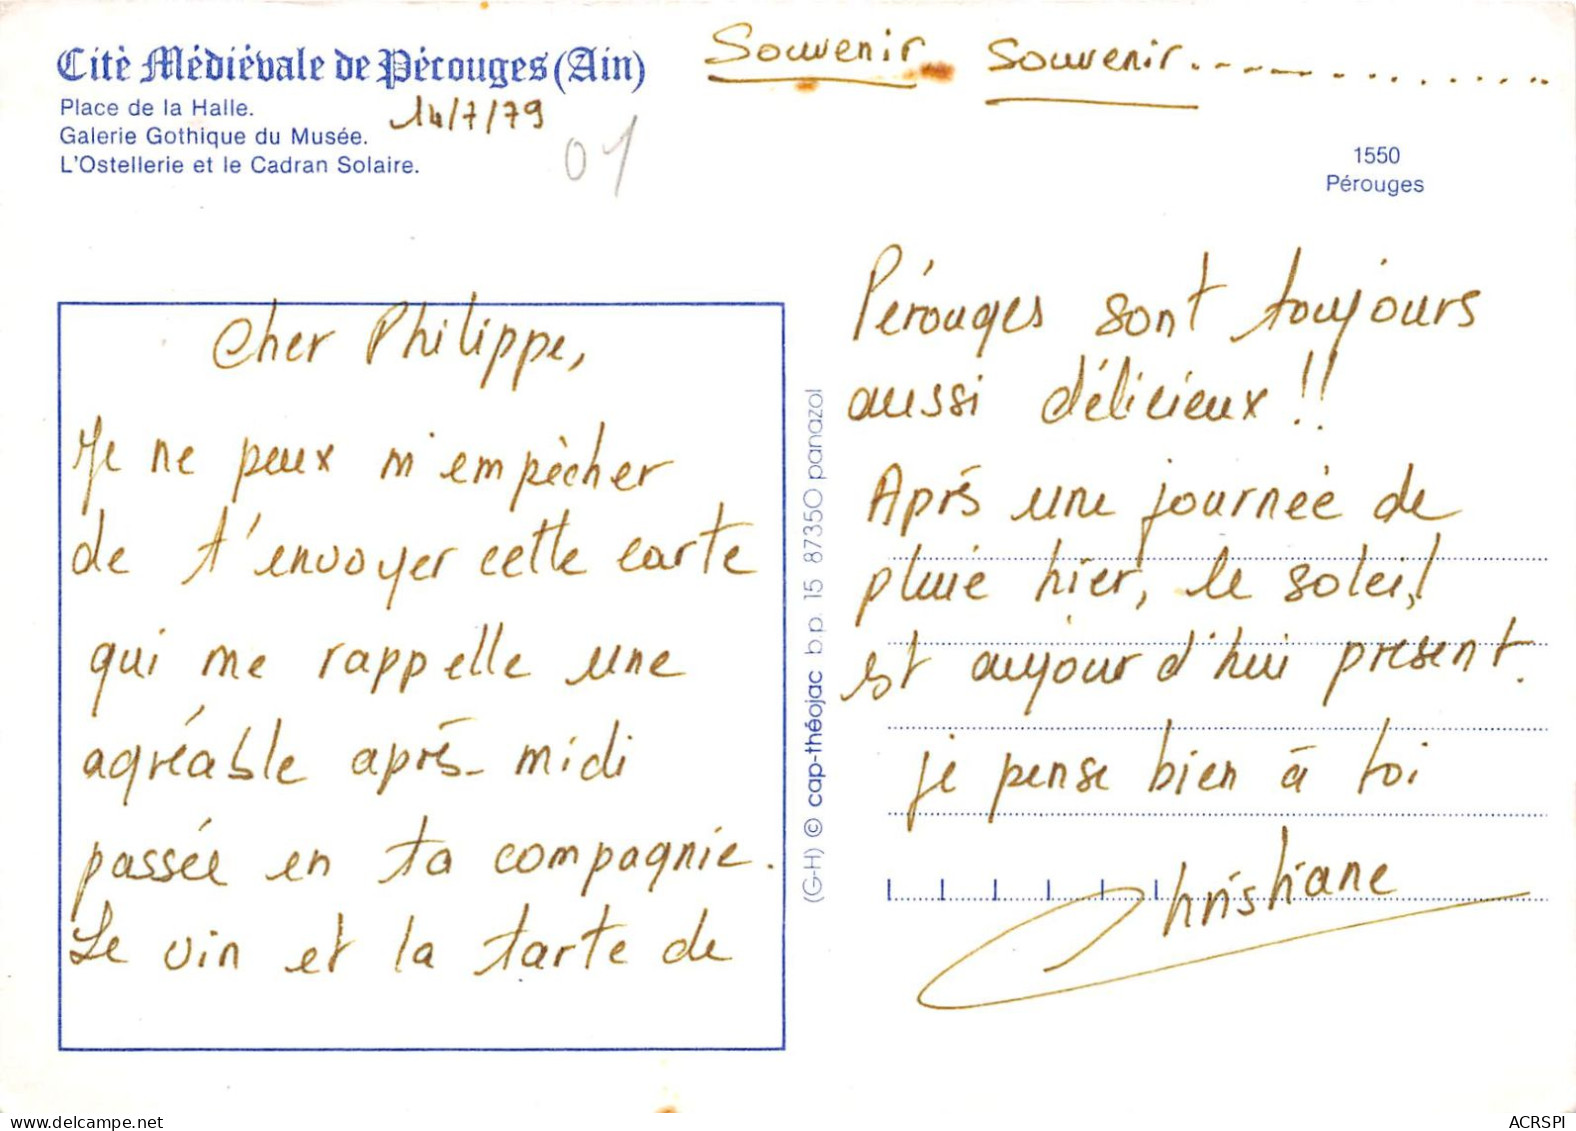 Citè Médiévale de Pérouges (Ain)
Place de la Halle.
Galerie Gothique du Musée.
L'Ostellerie et le Cadran Solaire.
14/7/79
01
Souvenir Souvenir..............
1550
Pérouges
Cher Philippe,
Je ne peux m'empècher
de t'envoyer cette carte
qui me rappelle une
agréable après-midi
passée en ta compagnie.
Le vin et la tarte de
(G-H) © cap-théojac b.p. 15 87350 panazol
Pérouges sont toujours
aussi délicieux !!
Après une journée de
pluie hier, le soleil
est aujourd'hui présent.
je pense bien à toi
Christiane
ACRSPI